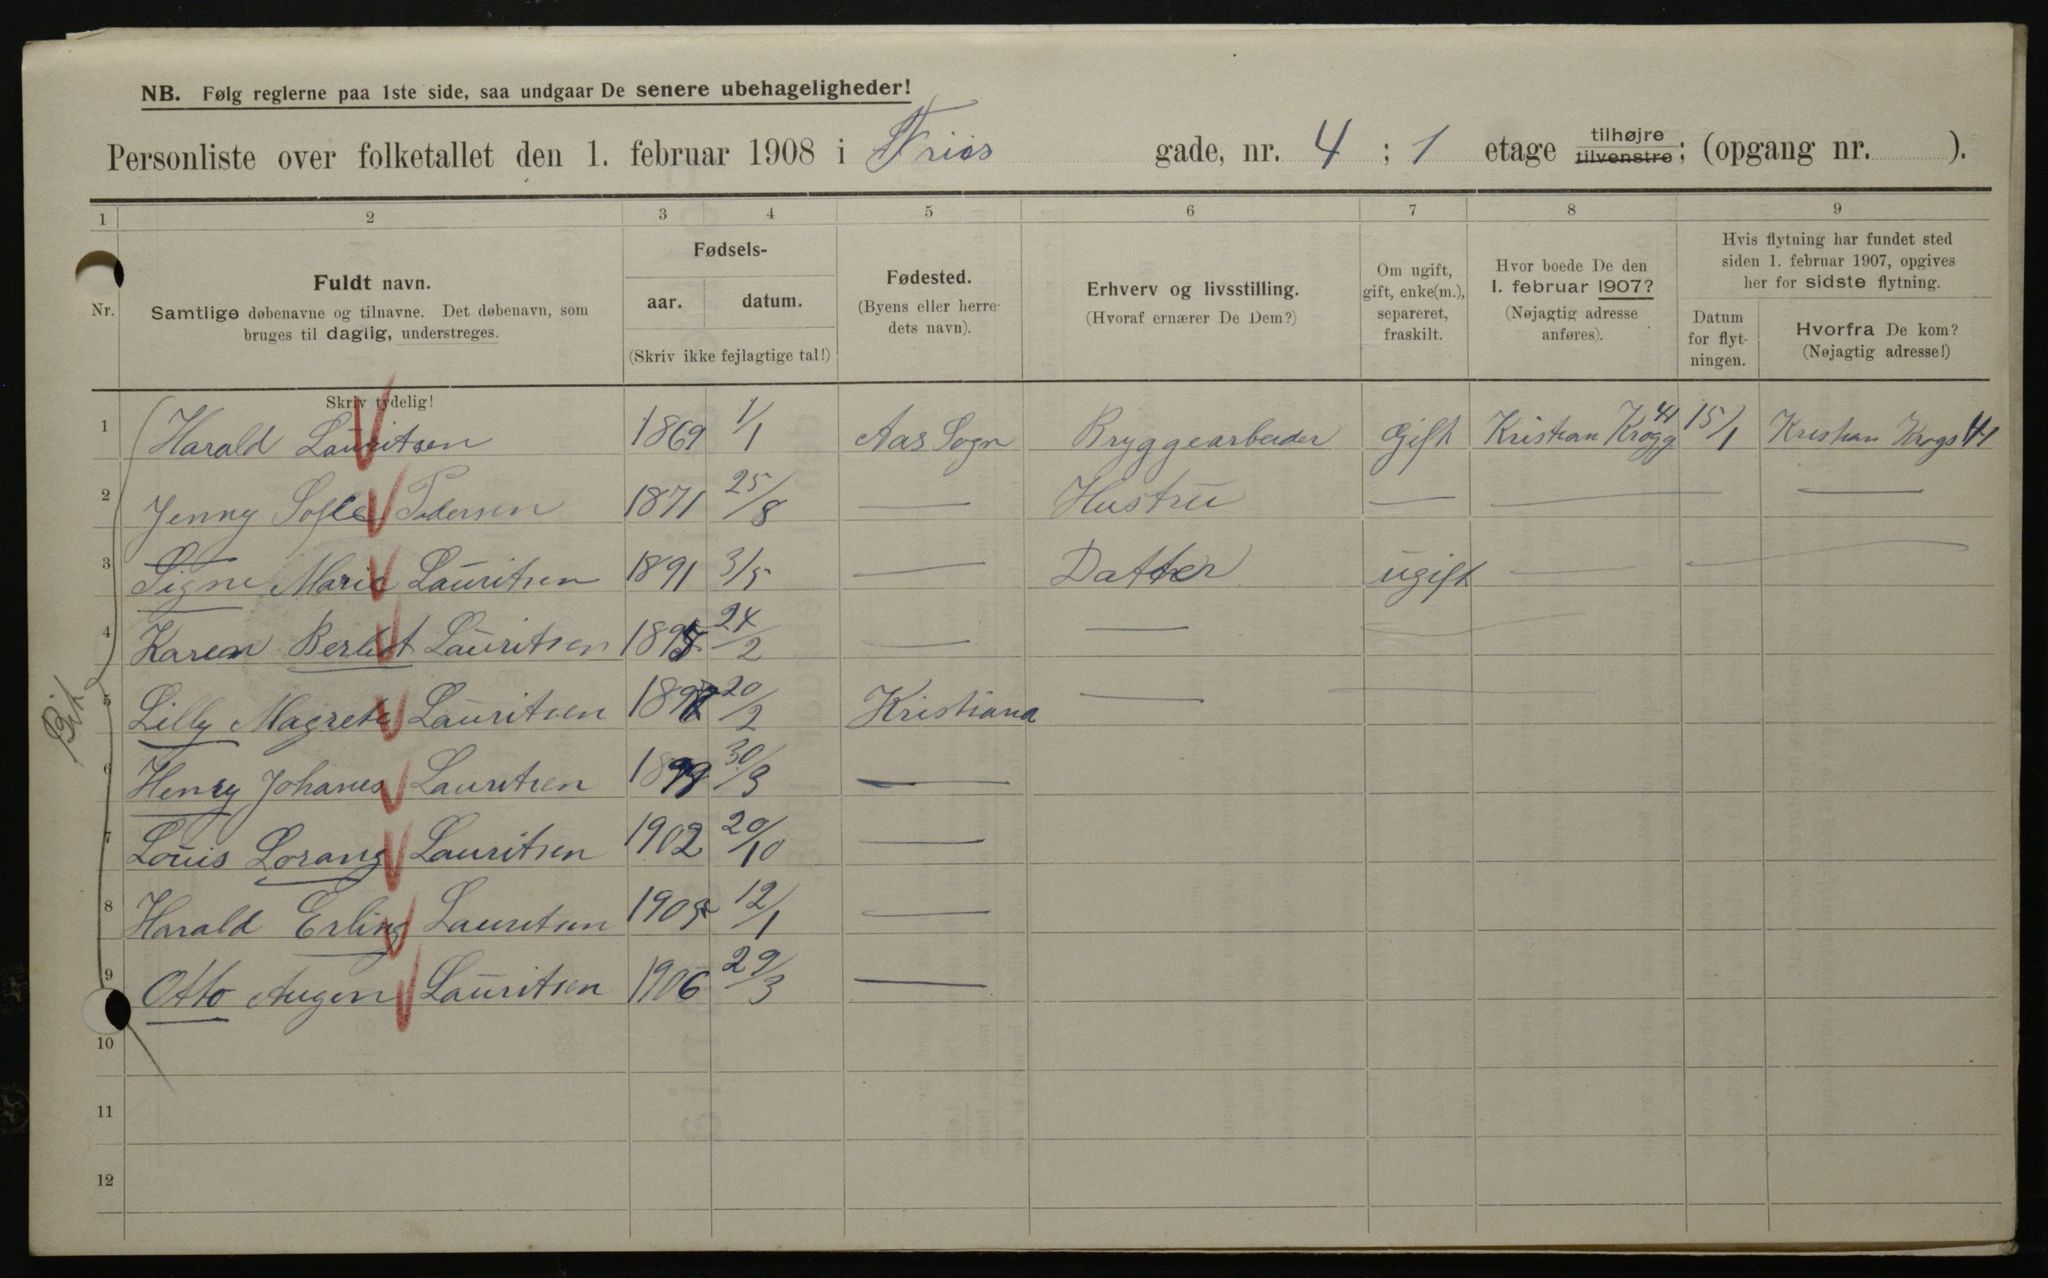 NB. Følg reglerne paa 1ste side, saa undgaar De senere ubehageligheder!
Personliste over folketallet den 1. februar 1908 i Friis gade, nr. 4 ; 1 etage tilhøjre tilvenstre; (opgang nr. ).
1 2 3 4 5 6 7 8 9
Nr.
Fuldt navn.
Samtlige døbenavne og tilnavne. Det døbenavn, som
bruges til daglig, understreges.
Skriv tydelig!
Fødsels-
aar. datum.
(Skriv ikke fejlagtige tal!)
Fødested.
(Byens eller herre-
dets navn).
Erhverv og livsstilling.
(Hvoraf ernærer De Dem?)
Om ugift,
gift, enke(m.),
separeret,
fraskilt.
Hvor boede De den
1. februar 1907?
(Nøjagtig adresse
anføres).
Hvis flytning har fundet sted
siden 1. februar 1907, opgives
her for sidste flytning.
Datum
for flyt-
ningen.
Hvorfra De kom?
(Nøjagtig adresse!)
1 Harald Lauritsen 1869 1/1 Aas Sogn Bryggearbeider Gift Kristian Krogg 41 15/1 Kristian Krogs 41
2 Jenny Sofie Pedersen 1871 25/8 — Hustru — — —
3 Signe Marie Lauritsen 1891 3/5 — Datter ugift — —
4 Karen Lauritsen 24/2 — — —
5 Lilly Magrete Lauritsen 20/2 Kristiana — —
6 Henry Johanes Lauritsen 30/3 —
7 Louis Lorang Lauritsen 1902 20/10 —
8 Harald Erling Lauritsen 1905 12/1 —
9 Otto Augen Lauritsen 1906 29/3 —
10
11
12